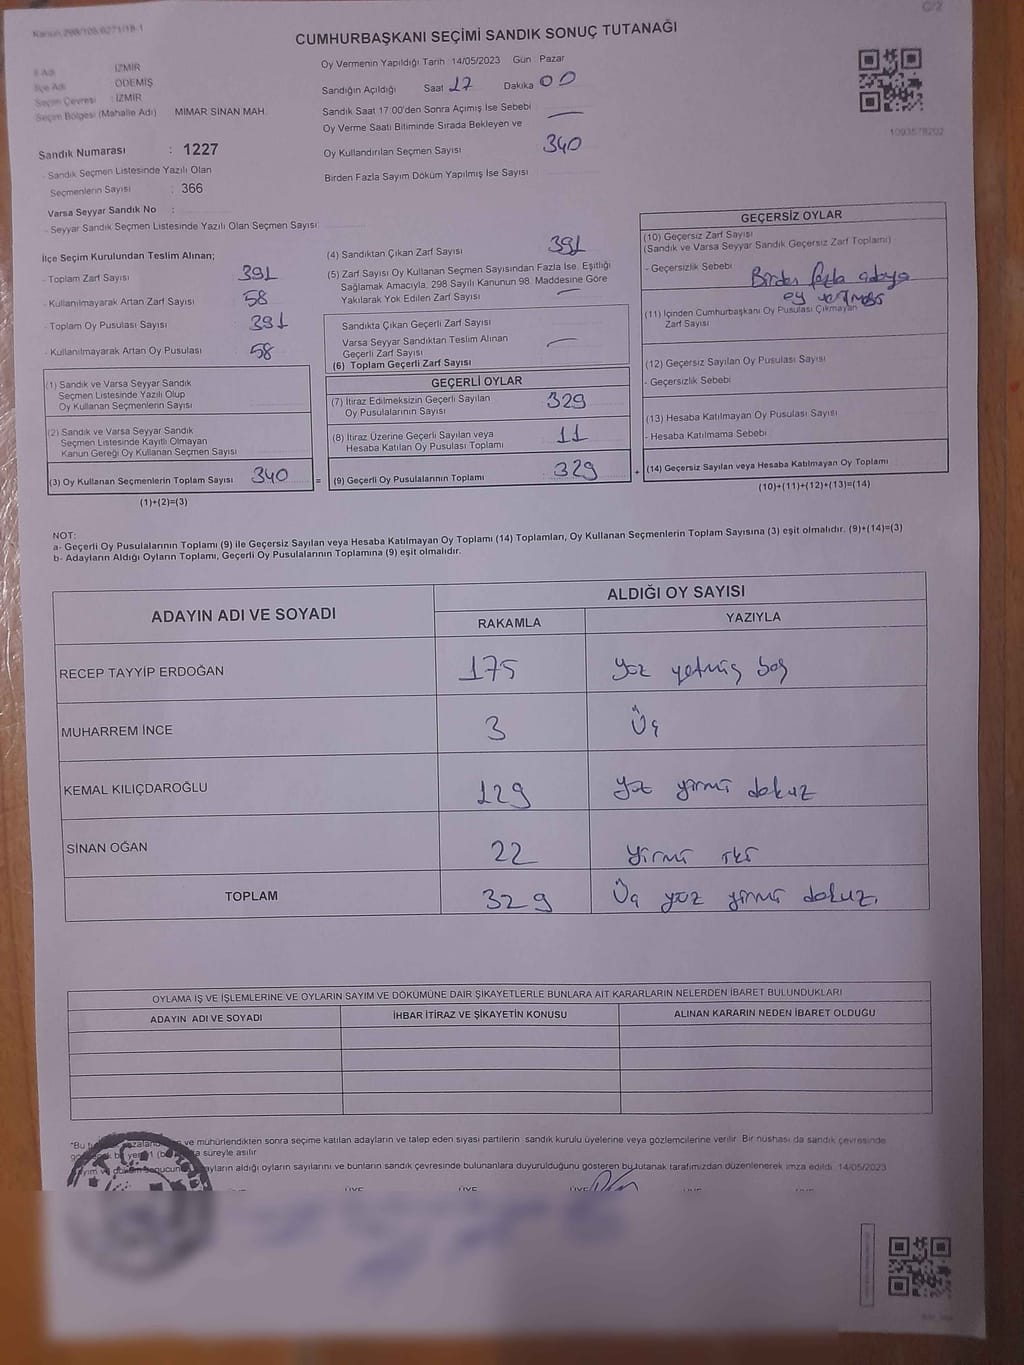 Kanun 298/105/6271/18-1
C/2
CUMHURBAŞKANI SEÇİMİ SANDIK SONUÇ TUTANAĞI
İl Adı : İZMİR
İlçe Adı : ÖDEMİŞ
Seçim Çevresi : İZMİR
Seçim Bölgesi (Mahalle Adı) MİMAR SİNAN MAH.
Oy Vermenin Yapıldığı Tarih 14/05/2023 Gün Pazar
Sandığın Açıldığı Saat 17 Dakika 00
Sandık Saat 17:00'den Sonra Açımış İse Sebebi
Oy Verme Saati Bitiminde Sırada Bekleyen ve
Oy Kullandırılan Seçmen Sayısı 340
Birden Fazla Sayım Döküm Yapılmış İse Sayısı
1093578202
Sandık Numarası : 1227
- Sandık Seçmen Listesinde Yazılı Olan
Seçmenlerin Sayısı : 366
Varsa Seyyar Sandık No :
- Seyyar Sandık Seçmen Listesinde Yazılı Olan Seçmen Sayısı:
İlçe Seçim Kurulundan Teslim Alınan;
- Toplam Zarf Sayısı 391
- Kullanılmayarak Artan Zarf Sayısı 58
- Toplam Oy Pusulası Sayısı 391
- Kullanılmayarak Artan Oy Pusulası 58
(1) Sandık ve Varsa Seyyar Sandık
Seçmen Listesinde Yazılı Olup
Oy Kullanan Seçmenlerin Sayısı
(2) Sandık ve Varsa Seyyar Sandık
Seçmen Listesinde Kayıtlı Olmayan
Kanun Gereği Oy Kullanan Seçmen Sayısı
(3) Oy Kullanan Seçmenlerin Toplam Sayısı 340 =
(1)+(2)=(3)
(4) Sandıktan Çıkan Zarf Sayısı 391
(5) Zarf Sayısı Oy Kullanan Seçmen Sayısından Fazla İse, Eşitliği
Sağlamak Amacıyla, 298 Sayılı Kanunun 98. Maddesine Göre
Yakılarak Yok Edilen Zarf Sayısı
Sandıkta Çıkan Geçerli Zarf Sayısı
Varsa Seyyar Sandıktan Teslim Alınan
Geçerli Zarf Sayısı
(6) Toplam Geçerli Zarf Sayısı
GEÇERLİ OYLAR
(7) İtiraz Edilmeksizin Geçerli Sayılan
Oy Pusulalarının Sayısı 329
(8) İtiraz Üzerine Geçerli Sayılan veya
Hesaba Katılan Oy Pusulası Toplamı 11
(9) Geçerli Oy Pusulalarının Toplamı 329 +
GEÇERSİZ OYLAR
(10) Geçersiz Zarf Sayısı
(Sandık ve Varsa Seyyar Sandık Geçersiz Zarf Toplamı)
- Geçersizlik Sebebi Birden fazla adaya
oy verilmesi
(11) İçinden Cumhurbaşkanı Oy Pusulası Çıkmayan
Zarf Sayısı
(12) Geçersiz Sayılan Oy Pusulası Sayısı
- Geçersizlik Sebebi
(13) Hesaba Katılmayan Oy Pusulası Sayısı
- Hesaba Katılmama Sebebi
(14) Geçersiz Sayılan veya Hesaba Katılmayan Oy Toplamı
(10)+(11)+(12)+(13)=(14)
NOT:
a- Geçerli Oy Pusulalarının Toplamı (9) ile Geçersiz Sayılan veya Hesaba Katılmayan Oy Toplamı (14) Toplamları, Oy Kullanan Seçmenlerin Toplam Sayısına (3) eşit olmalıdır. (9)+(14)=(3)
b- Adayların Aldığı Oyların Toplamı, Geçerli Oy Pusulalarının Toplamına (9) eşit olmalıdır.
ADAYIN ADI VE SOYADI
ALDIĞI OY SAYISI
RAKAMLA
YAZIYLA
RECEP TAYYİP ERDOĞAN 175 yüz yetmiş beş
MUHARREM İNCE 3 Üç
KEMAL KILIÇDAROĞLU 129 yüz yirmi dokuz
SİNAN OĞAN 22 yirmi iki
TOPLAM 329 Üç yüz yirmi dokuz.
OYLAMA İŞ VE İŞLEMLERİNE VE OYLARIN SAYIM VE DÖKÜMÜNE DAİR ŞİKAYETLERLE BUNLARA AİT KARARLARIN NELERDEN İBARET BULUNDUKLARI
ADAYIN ADI VE SOYADI
İHBAR İTİRAZ VE ŞİKAYETİN KONUSU
ALINAN KARARIN NEDEN İBARET OLDUĞU
ve mühürlendikten sonra seçime katılan adayların ve talep eden siyasi partilerin sandık kurulu üyelerine veya gözlemcilerine verilir. Bir nüshası da sandık çevresinde
süreyle asılır.
aldığı oyların sayılarını ve bunların sandık çevresinde bulunanlara duyurulduğunu gösteren bu tutanak tarafımızdan düzenlenerek imza edildi. 14/05/2023